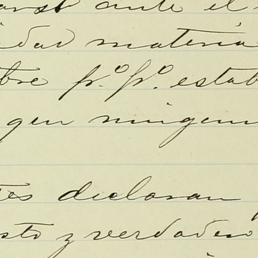 ante el
idad materia
bre p.º p.º estab
gen ningun
tes declaran
sto y verdader